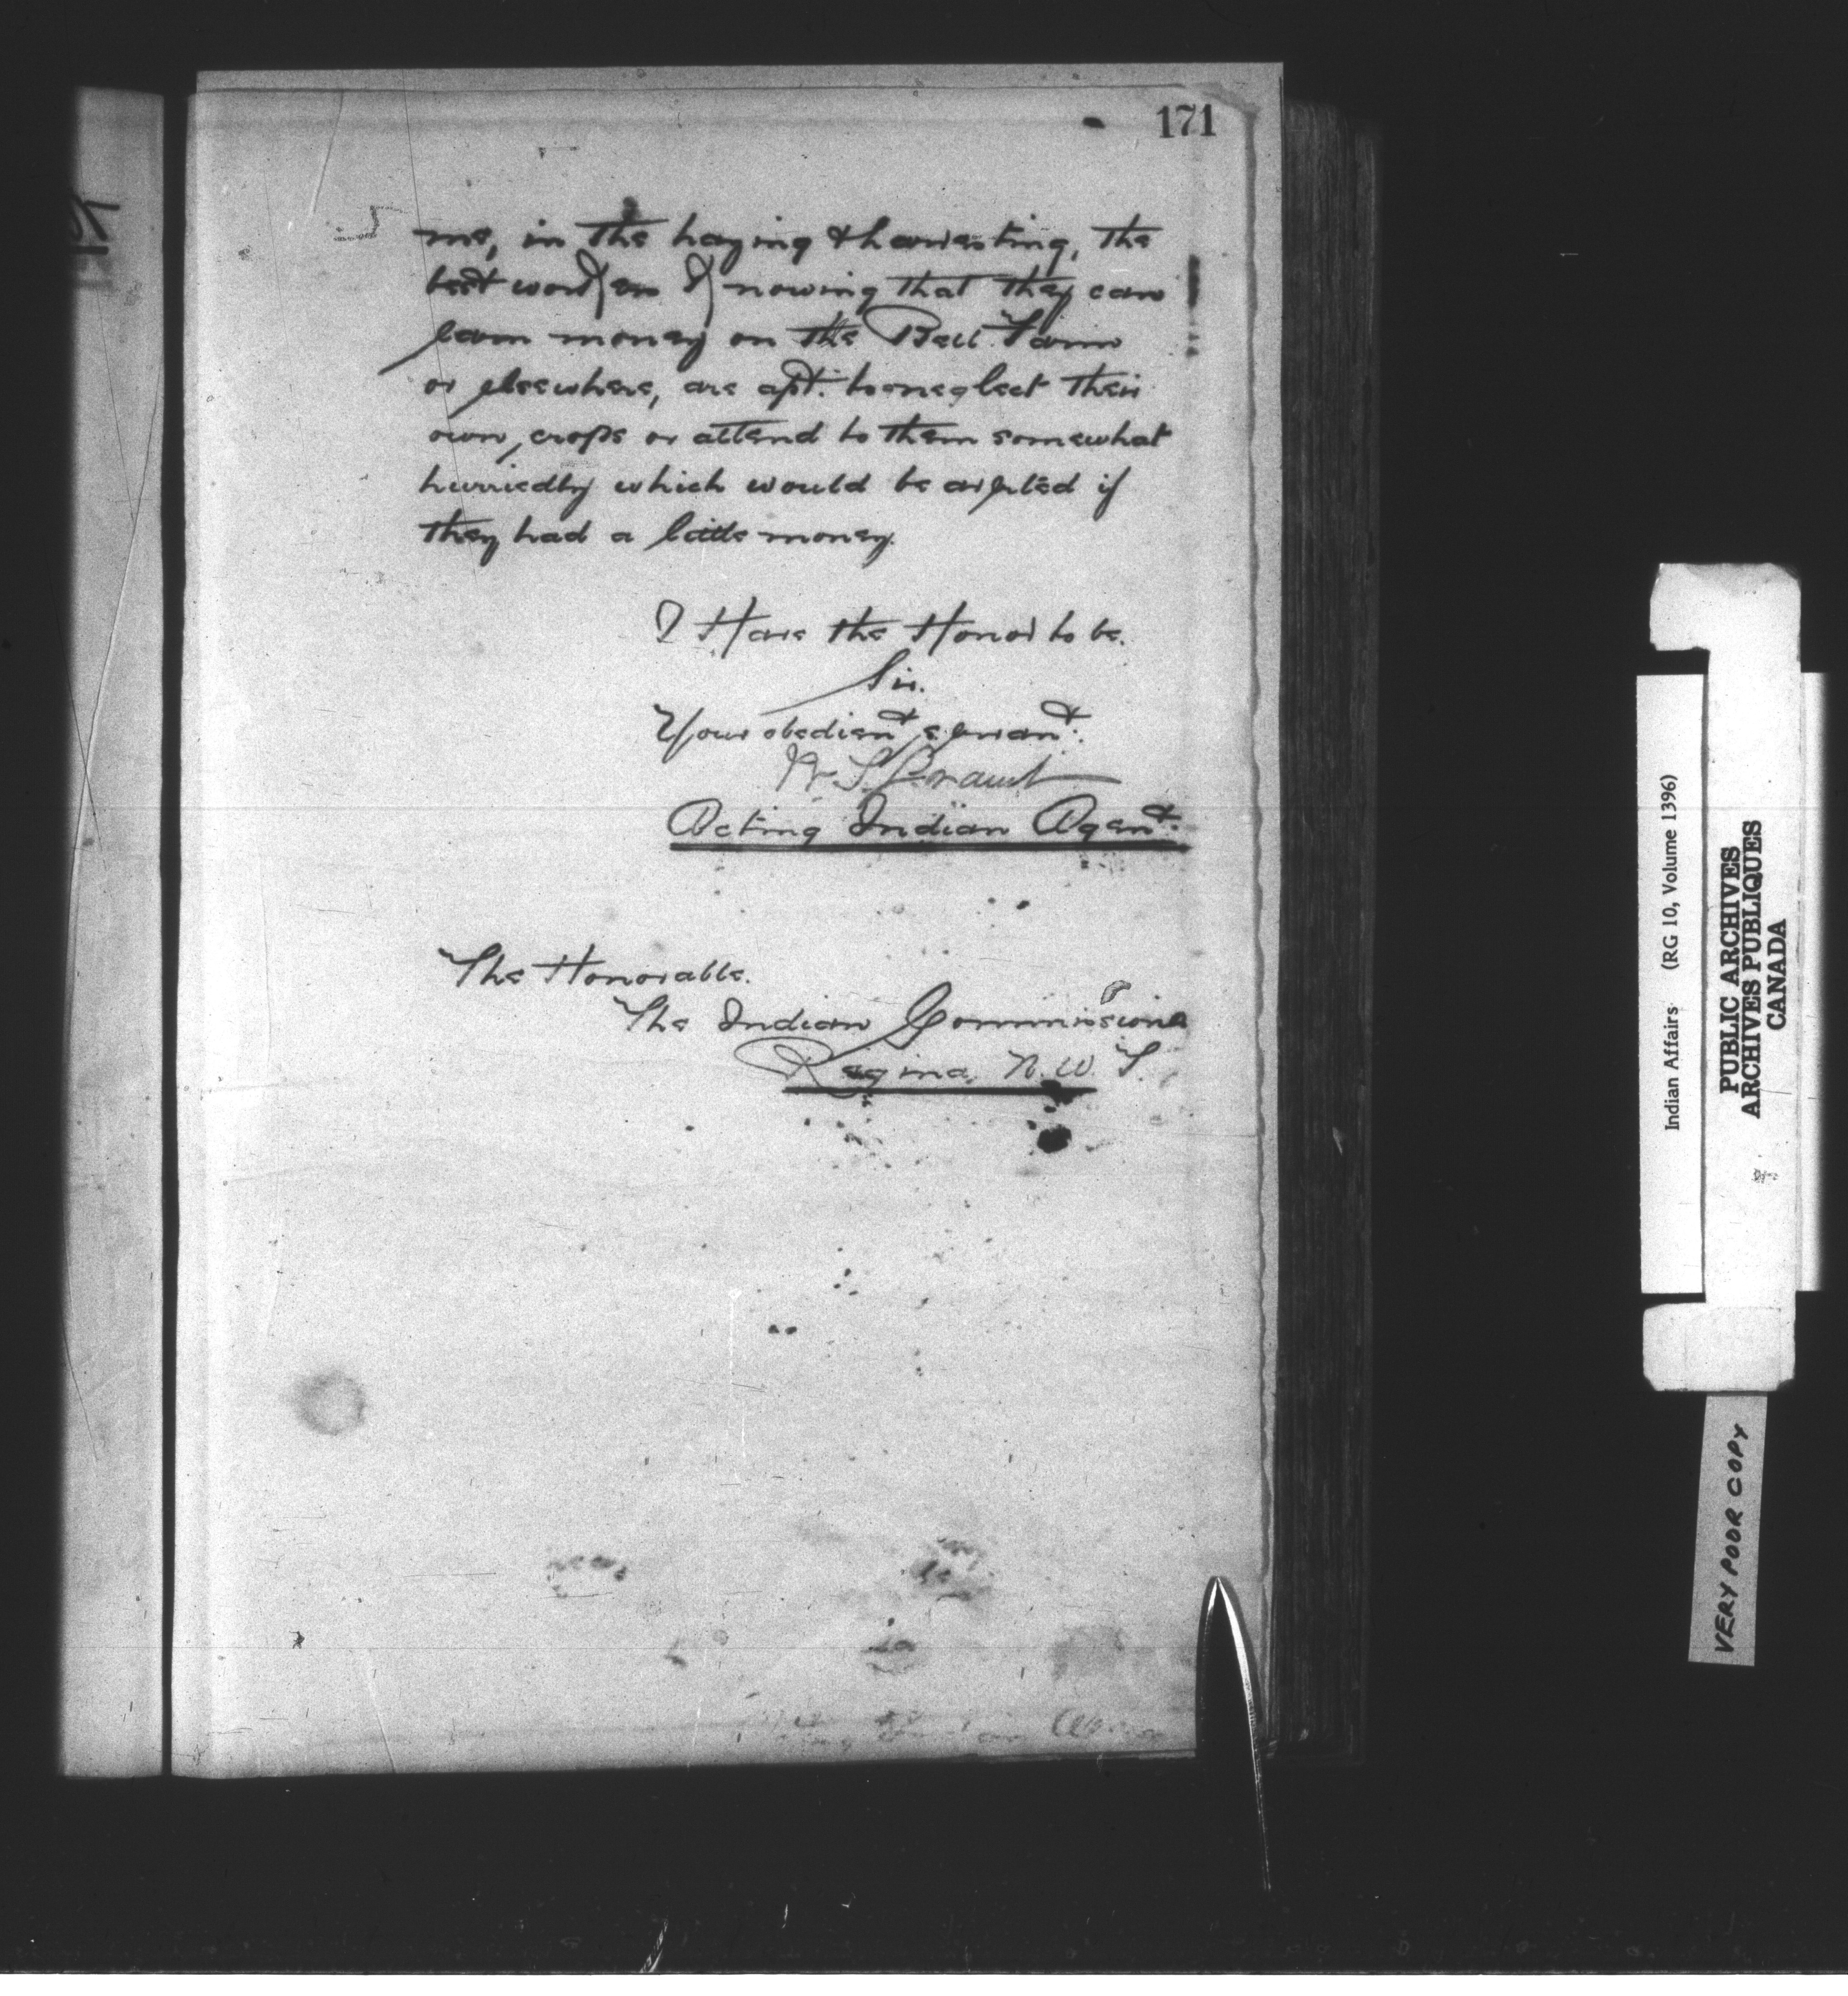 171
me, in the haying & harvesting, the
best workers knowing that they can
earn money on the Bell Farm
or elsewhere, are apt to neglect their
own crops or attend to them somewhat
hurriedly which would be averted if
they had a little money.
I Have the Honor to be.
Sir.
Your obedient servant.
W. S. Grant
Acting Indian Agent.
The Honorable.
The Indian Commissioner
Regina, N.W.T.
Indian Affairs (RG 10, Volume 1396)
PUBLIC ARCHIVES
ARCHIVES PUBLIQUES
CANADA
VERY POOR COPY